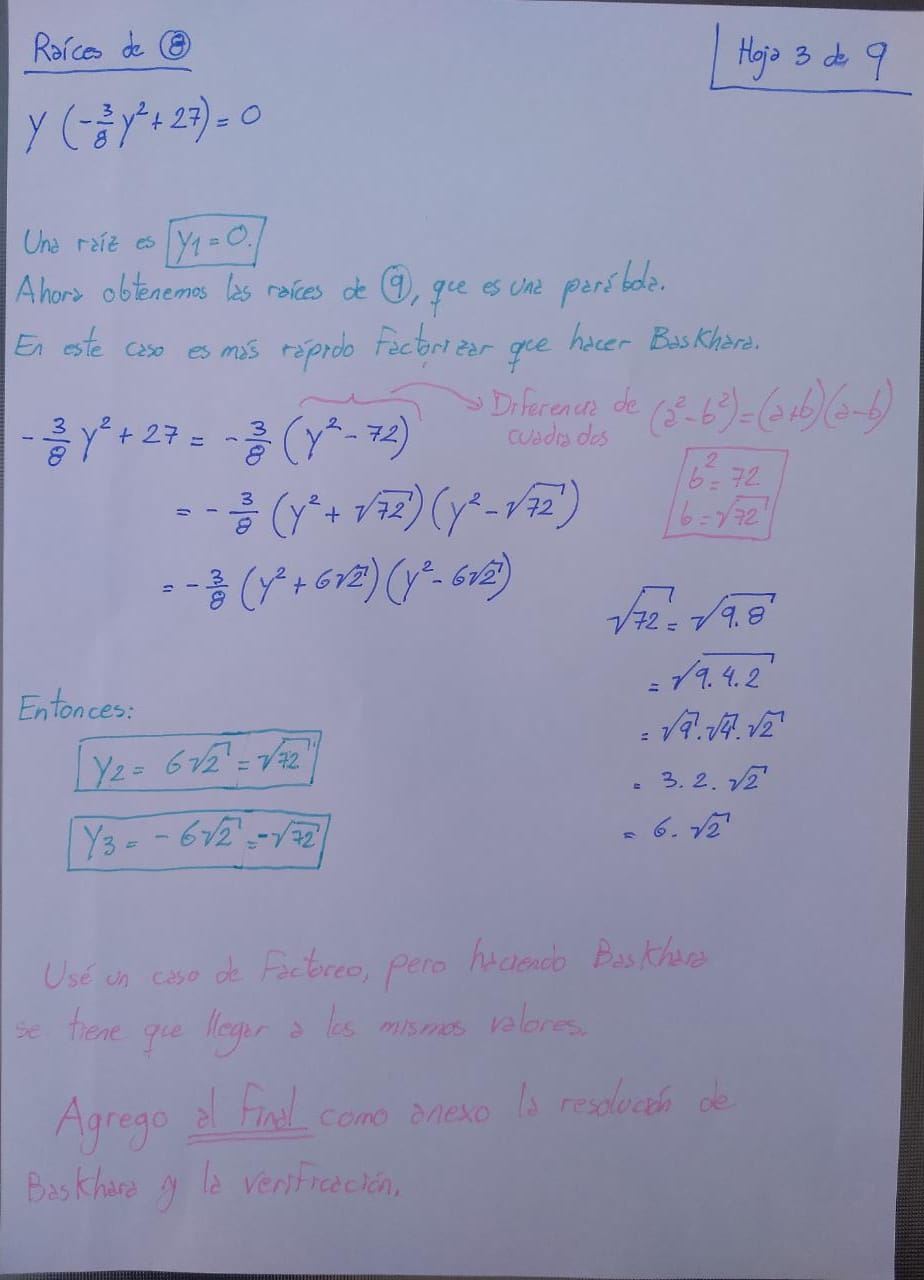 Raíces de ⑧
Hoja 3 de 9
y (-3/8 y² + 27) = 0
Una raíz es y₁ = 0.
Ahora obtenemos las raíces de ⑨, que es una parábola.
En este caso es más rápido Factorizar que hacer Baskhara.
-3/8 y² + 27 = -3/8 (y² - 72)
Diferencia de cuadrados (a² - b²) = (a+b)(a-b)
b² = 72
b = √72
= -3/8 (y² + √72) (y² - √72)
= -3/8 (y² + 6√2) (y² - 6√2)
√72 = √9.8
= √9.4.2
= √9.√4.√2
= 3.2.√2
= 6.√2
Entonces:
y₂ = 6√2 = √72
y₃ = -6√2 = -√72
Usé un caso de Factoreo, pero haciendo Baskhara
se tiene que llegar a los mismos valores.
Agrego al Final como anexo la resolución de
Baskhara y la verificación.